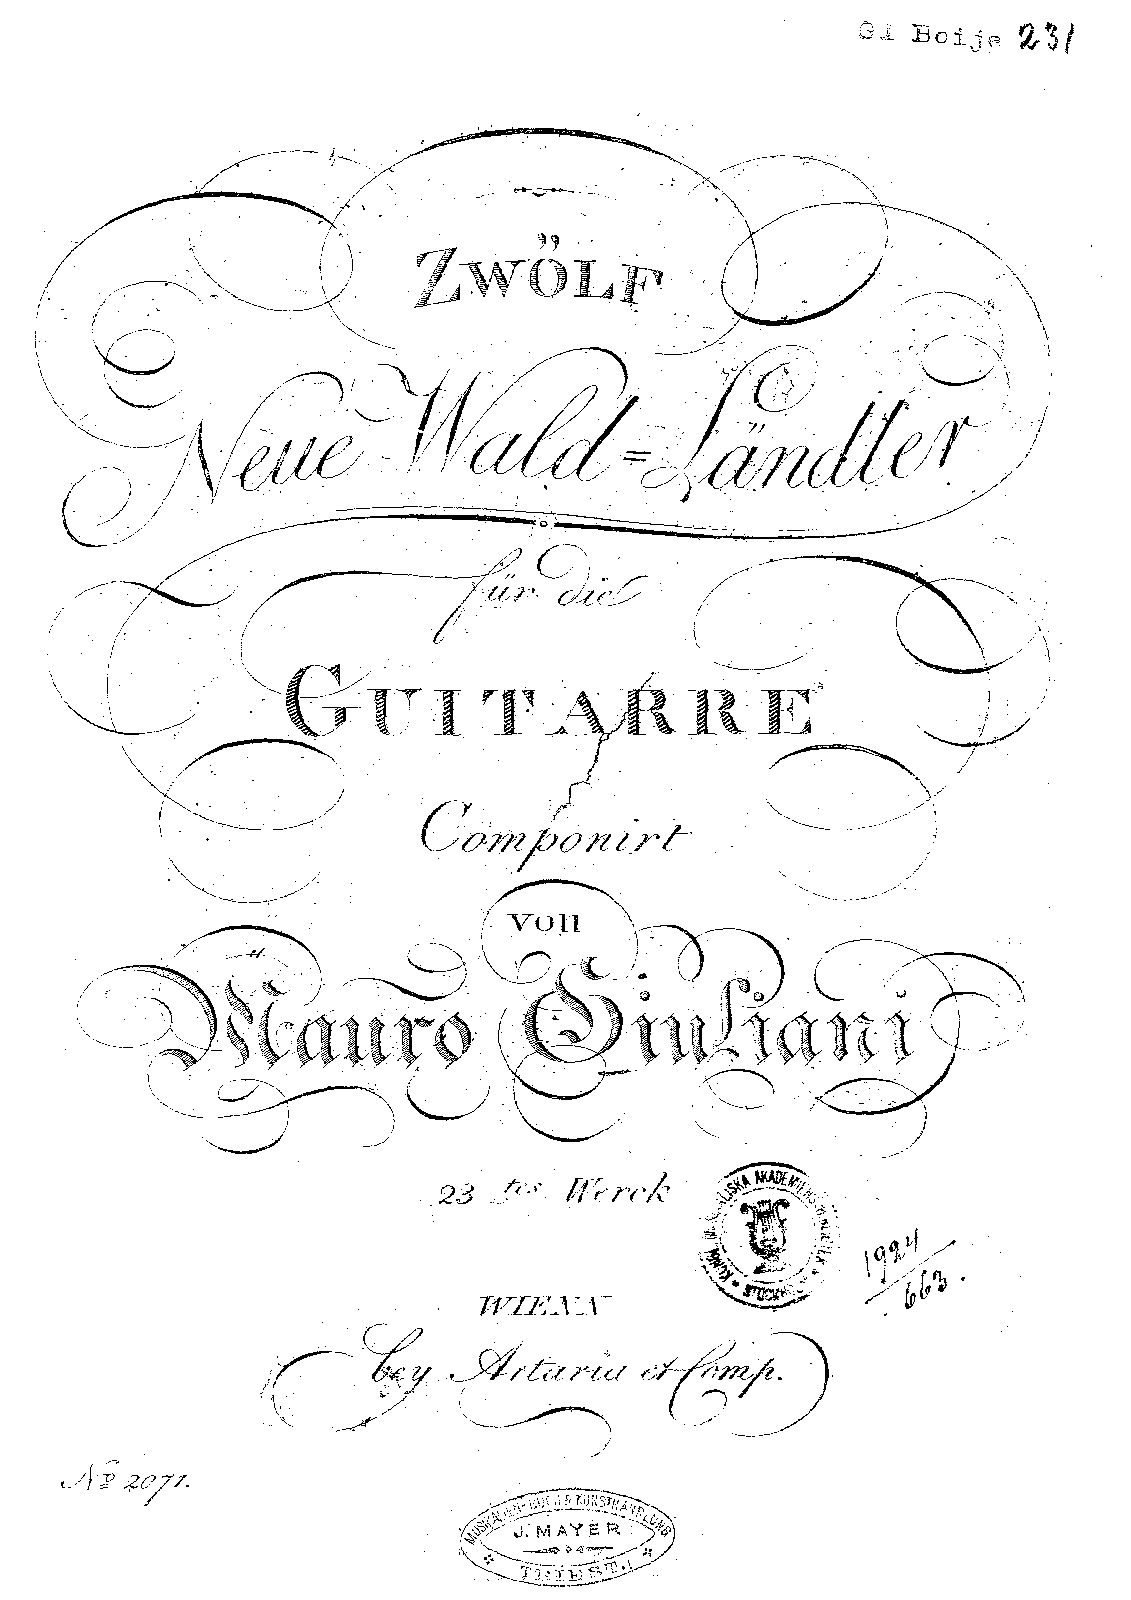 Gl Boije 231
ZWÖLF
Neue Wald=Ländler
für die
GUITARRE
Componirt
von
Mauro Giuliani
23 tes Werck
KUNGL. MUSIKALISKA AKADEMIENS BIBLIOTEK STOCKHOLM
1924
663.
WIENN
bey Artaria et Comp.
No 2071.
MUSIKALIEN-BUCH & KUNSTHANDLUNG
J. MAYER
TRIEST.